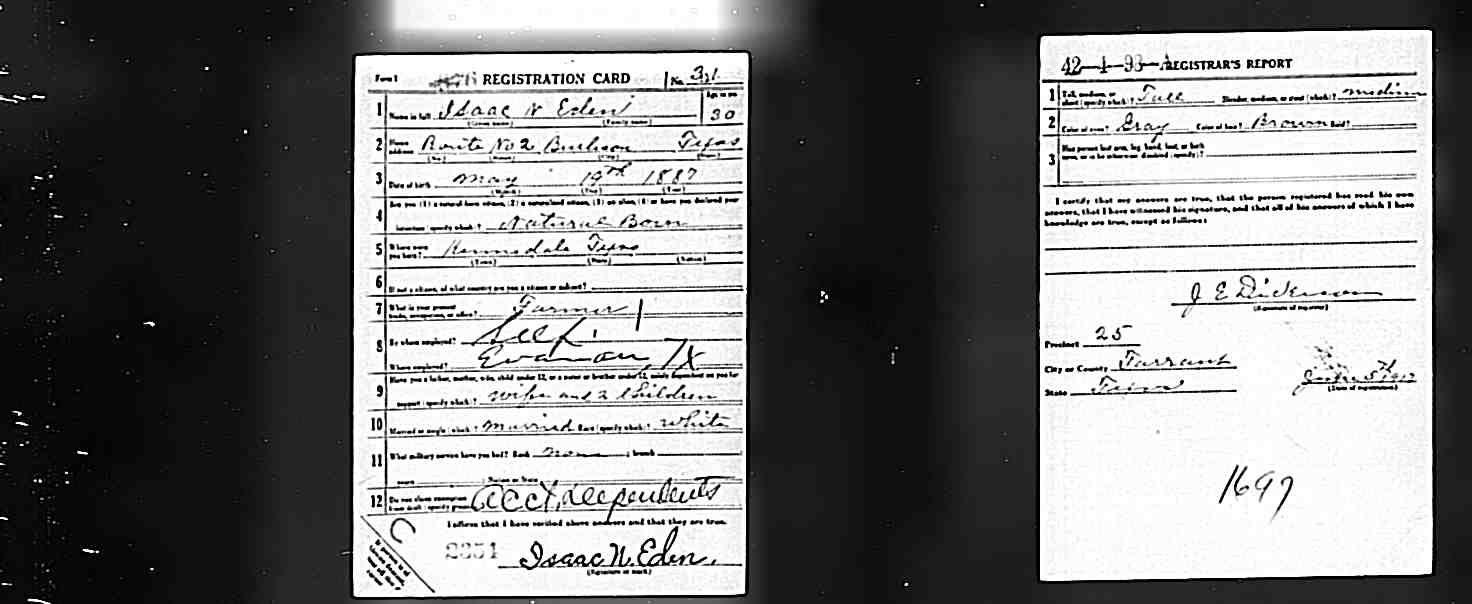 Form 1 REGISTRATION CARD No. 321
1 Name in full Isaac N Eden Age in yrs 30
(Given name) (Family name)
2 Home address Route No 2 Burleson Texas
(No.) (Street) (City) (State)
3 Date of birth May 19th 1887
(Month) (Day) (Year)
4 Are you (1) a natural-born citizen, (2) a naturalized citizen, (3) an alien, (4) or have you declared your
intention (specify which)? Natural Born
5 Where were you born? Kennedale Texas
(Town) (State) (Nation)
6 If not a citizen, of what country are you a citizen or subject?
7 What is your present trade, occupation, or office? Farmer
8 By whom employed? Self
Where employed? Tx
9 Have you a father, mother, wife, child under 12, or a sister or brother under 12, solely dependent on you for
support (specify which)? Wife and 2 Children
10 Married or single (which)? Married Race (specify which)? White
11 What military service have you had? Rank None ; branch
years ; Nation or State
12 Do you claim exemption from draft (specify grounds)? Acct, Dependents
I affirm that I have verified above answers and that they are true.
2351 Isaac N. Eden.
(Signature or mark)
42-4-93-A REGISTRAR'S REPORT
1 Tall, medium, or short (specify which)? Tall Slender, medium, or stout (which)? Medium
2 Color of eyes? Gray Color of hair? Brown Bald?
3 Has person lost arm, leg, hand, foot, or both
eyes, or is he otherwise disabled (specify)?
I certify that my answers are true, that the person registered has read his own
answers, that I have witnessed his signature, and that all of his answers of which I have
knowledge are true, except as follows:
J E Dickerson
(Signature of registrar)
Precinct 25
City or County Tarrant
State Texas
June 5th 1917
(Date of registration)
1697